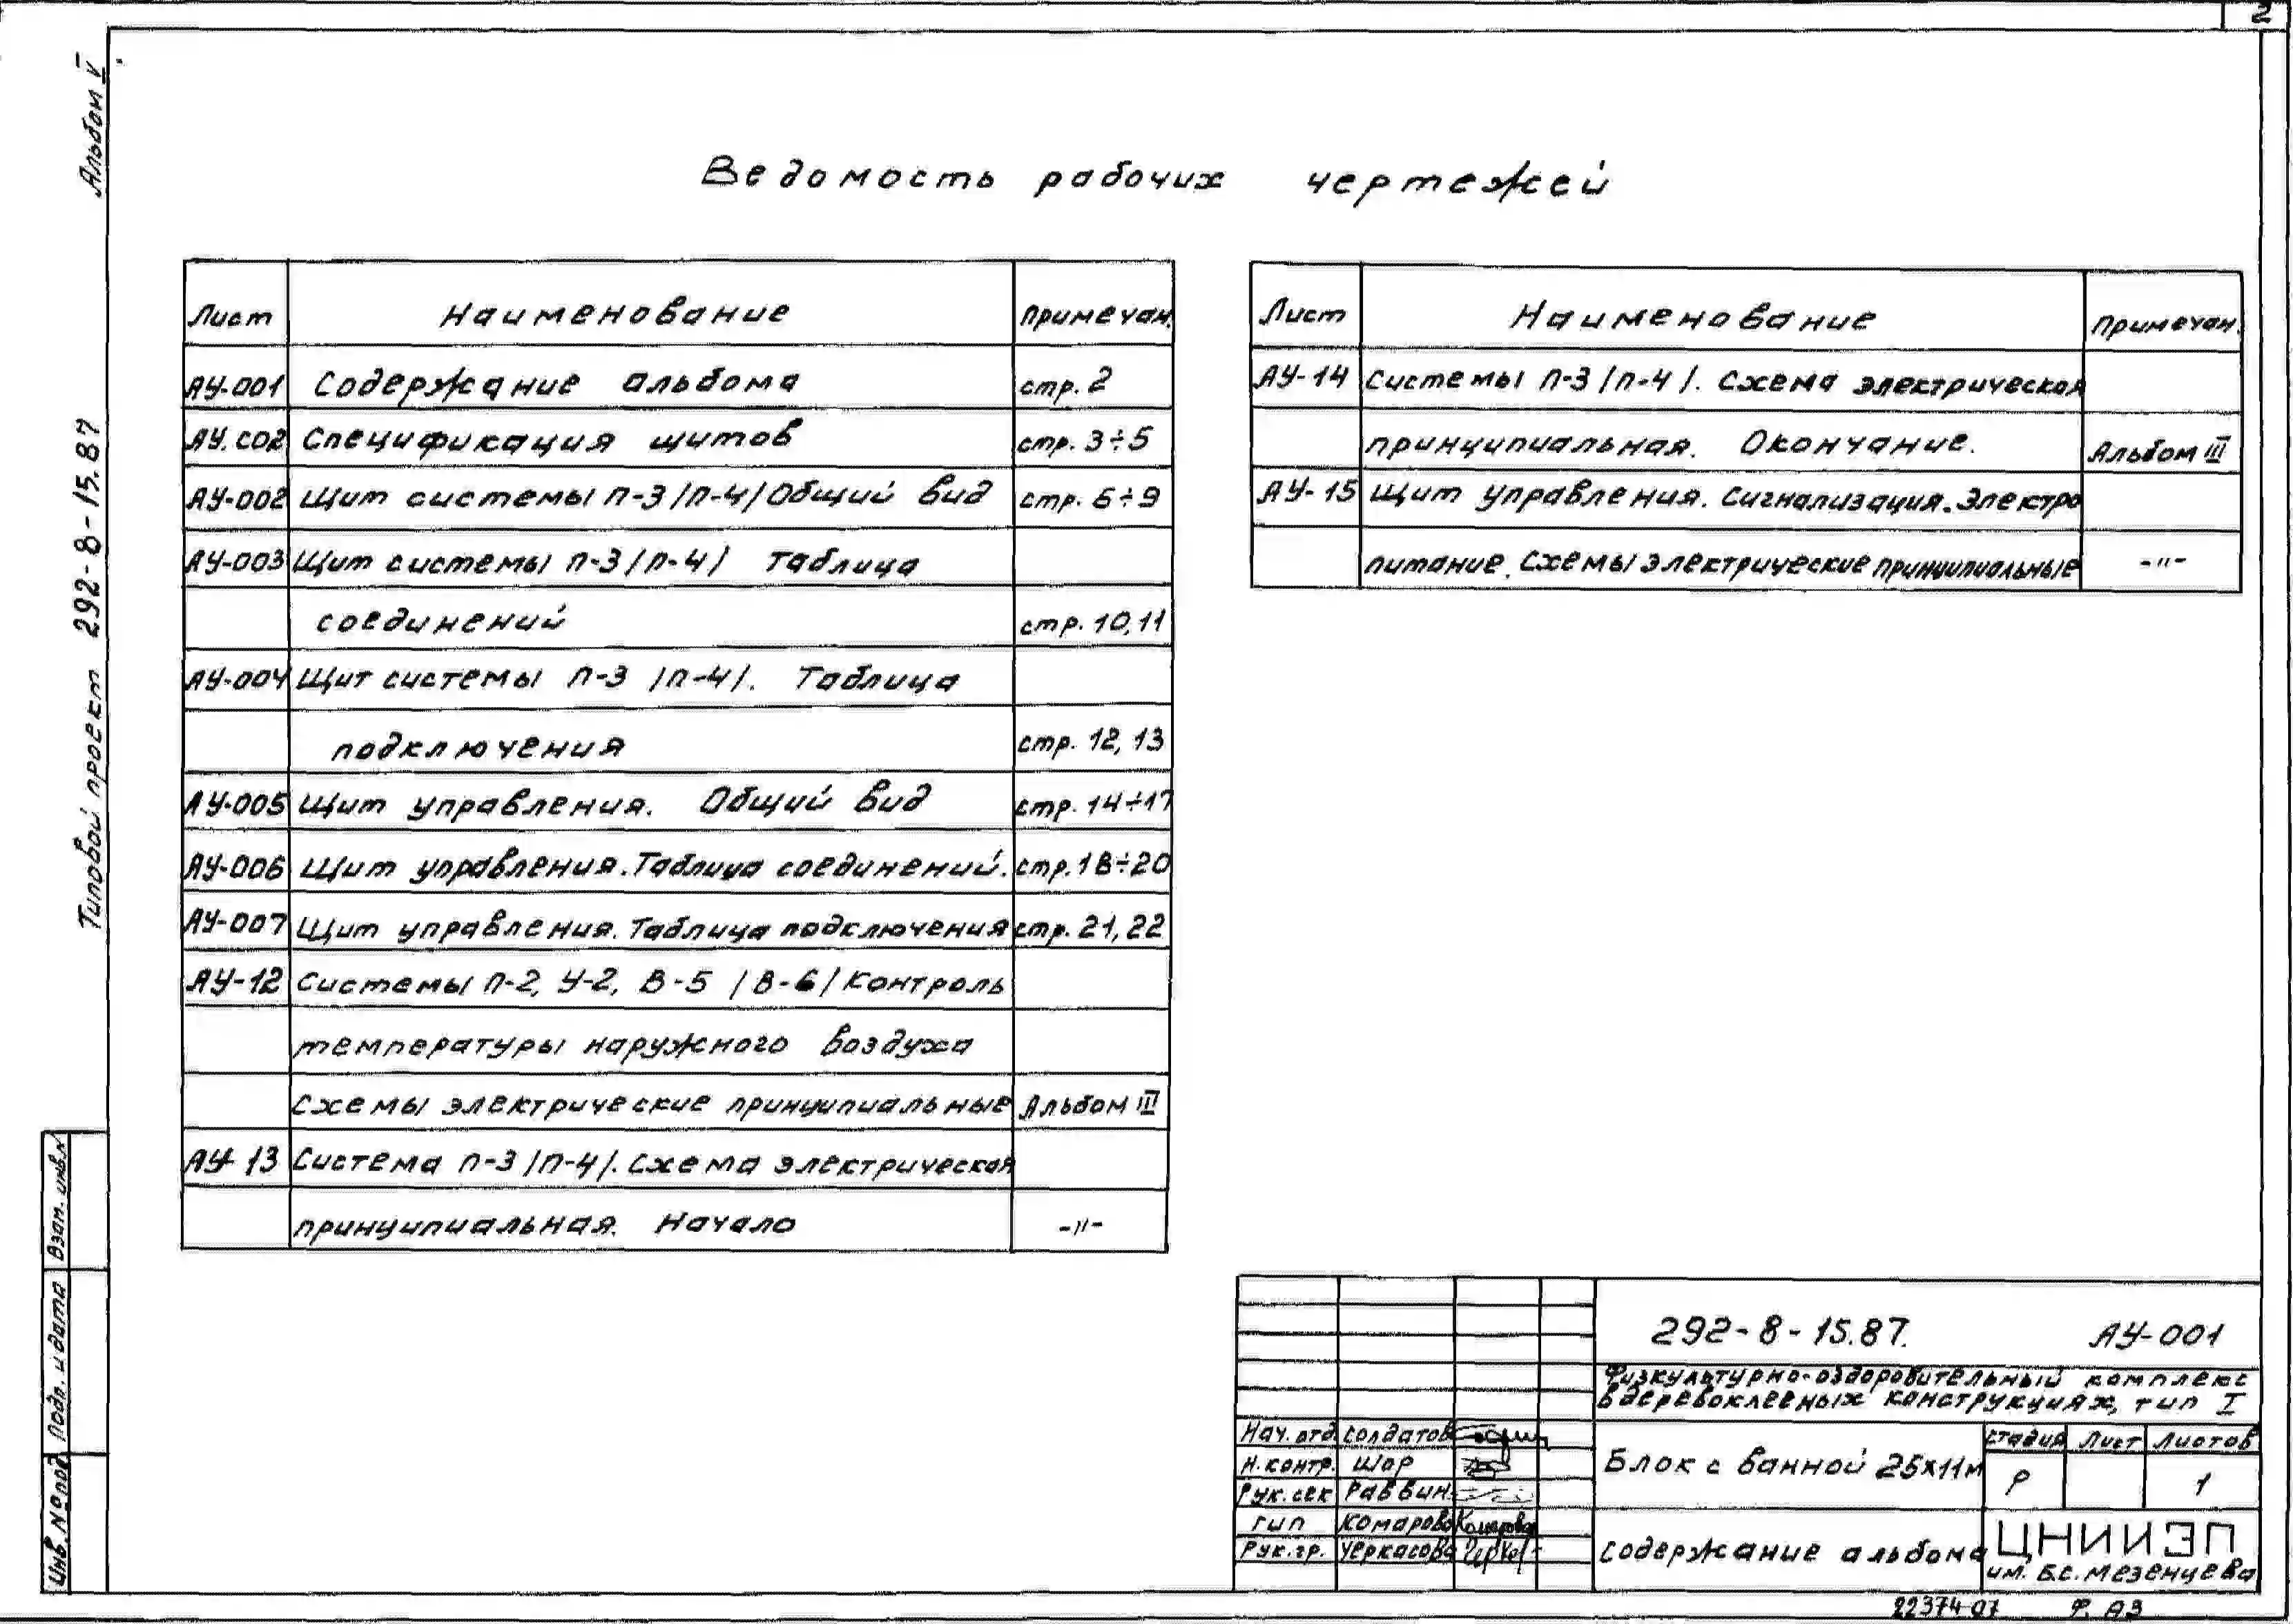 2
Альбом V
Типовой проект 292-8-15.87
Ведомость рабочих чертежей
Лист Наименование Примечан.
АУ-001 Содержание альбома стр. 2
АУ.СО2 Спецификация щитов стр. 3÷5
АУ-002 Щит системы П-3 /П-4/ Общий вид стр. 6÷9
АУ-003 Щит системы П-3 /П-4/ Таблица
соединений стр. 10,11
АУ-004 Щит системы П-3 /П-4/. Таблица
подключения стр. 12, 13
АУ-005 Щит управления. Общий вид стр. 14÷17
АУ-006 Щит управления. Таблица соединений. стр. 18÷20
АУ-007 Щит управления. Таблица подключения стр. 21, 22
АУ-12 Системы П-2, У-2, В-5 /В-6/ Контроль
температуры наружного воздуха
Схемы электрические принципиальные Альбом III
АУ-13 Система П-3 /П-4/. Схема электрическая
принципиальная. Начало -"-
Лист Наименование Примечан.
АУ-14 Системы П-3 /П-4/. Схема электрическая
принципиальная. Окончание. Альбом III
АУ-15 Щит управления. Сигнализация. Электро
питание. Схемы электрические принципиальные -"-
Взам. инв. №
Подп. и дата
Инв. № под
292-8-15.87. АУ-001
Физкультурно-оздоровительный комплекс
в деревоклееных конструкциях, тип I
Нач. отд. Солдатов
Н. контр. Шор
Рук. сек Раввин
ГИП Комарова Комарова
Рук. гр. Черкасова
Блок с ванной 25х11м
Стадия Лист Листов
Р 1
Содержание альбома
ЦНИИЭП
им. Б.С. Мезенцева
22374-07 Ф. А3